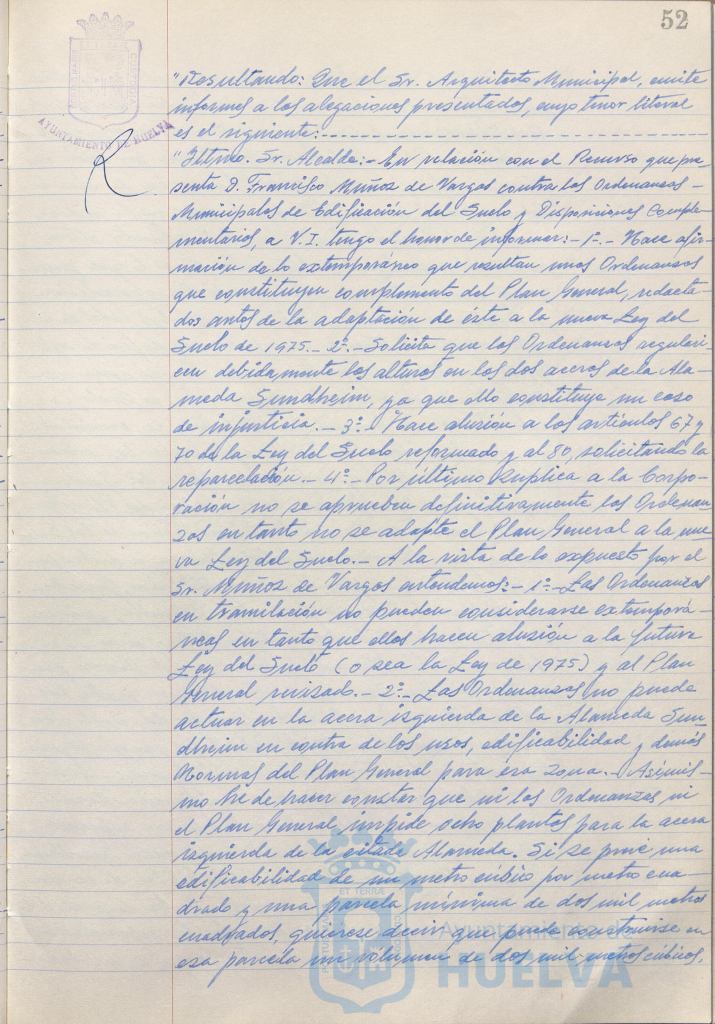 52
AYUNTAMIENTO DE HUELVA
"Resultando: Que el Sr. Arquitecto Municipal, emite
informes a las alegaciones presentadas, cuyo tenor literal
es el siguiente:
"Iltmo. Sr. Alcalde:- En relación con el Recurso que pre-
senta D. Francisco Muñoz de Vargas contra las Ordenanzas
Municipales de Edificación del Suelo y Disposiciones Comple-
mentarias, a V.I. tengo el honor de informar:- 1º.- Hace afir-
mación de lo extemporáneo que resultan unas Ordenanzas
que constituyen complemento del Plan General, redacta-
das antes de la adaptación de éste a la nueva Ley del
Suelo de 1975.- 2º.- Solicita que las Ordenanzas regulari-
cen debidamente las alturas en las dos aceras de la Ala-
meda Sundheim, ya que ello constituye un caso
de injusticia.- 3º.- Hace alusión a los artículos 67 y
70 de la Ley del Suelo reformado y al 80, solicitando la
reparcelación.- 4º.- Por último suplica a la Corpo-
ración no se aprueben definitivamente las Ordenan-
zas en tanto no se adapte el Plan General a la nue-
va Ley del Suelo.- A la vista de lo expuesto por el
Sr. Muñoz de Vargas entendemos:- 1º.- Las Ordenanzas
en tramitación no pueden considerarse extemporá-
neas en tanto que ellas hacen alusión a la futura
Ley del Suelo (o sea la Ley de 1975) y al Plan
General revisado.- 2º.- Las Ordenanzas no puede
actuar en la acera izquierda de la Alameda Sun-
dheim en contra de los usos, edificabilidad y demás
Normas del Plan General para esa zona.- Asimis-
mo he de hacer constar que ni las Ordenanzas ni
el Plan General impide ocho plantas para la acera
izquierda de la citada Alameda. Si se prevé una
edificabilidad de un metro cúbico por metro cua-
drado y una parcela mínima de dos mil metros
cuadrados, quierese decir que puede construirse en
esa parcela un volumen de dos mil metros cúbicos,
Ayuntamiento de
HUELVA